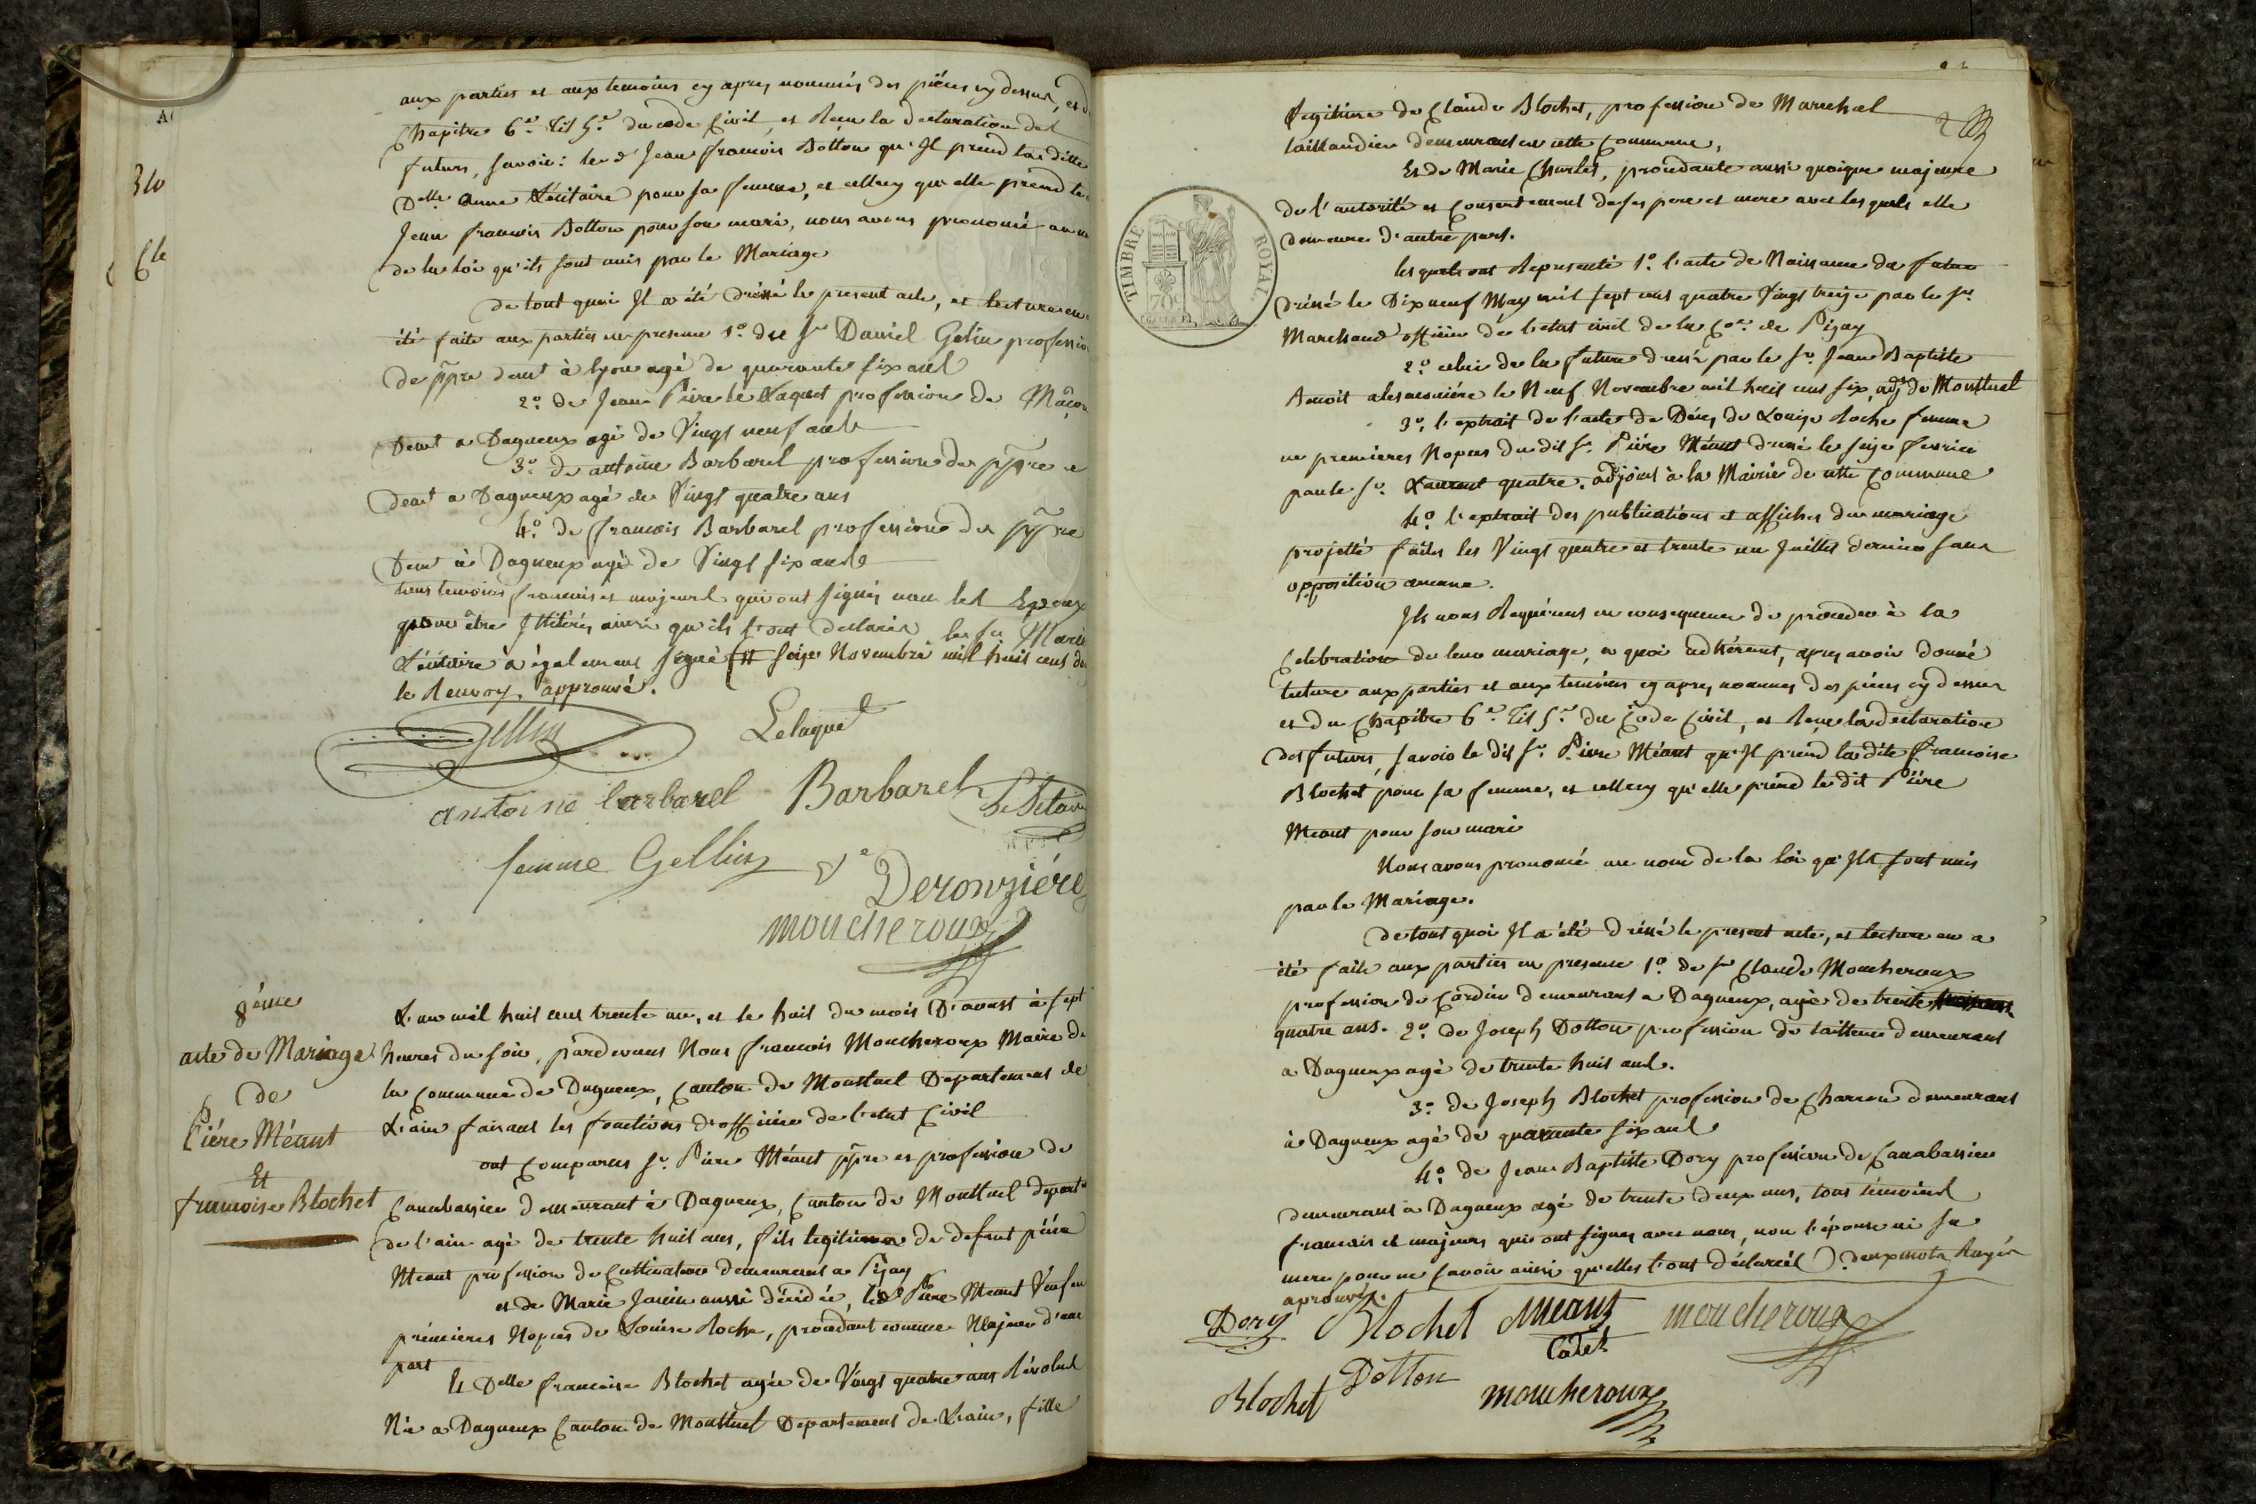 aux parties et aux temoins cy apres nommés des piéces cy dessus, et d
Chapitre 6e. Tit 5e. du code Civil, et Recu la declaration des
futurs, savoir: le sr Jean francois Dotton qu'Il prend la ditte
Delle anne Létitaire pour sa femme, et cellecy qu'elle prend le
Jean francois Dotton pour son mari, nous avons prononcé au n
de la loi qu'ils sont unis par le Mariage
de tout quoi Il a été dréssé le present acte, et lecture en
été faite aux parties en presence 1o. du sr Daniel Gelin profession
de ppre demt à lyon agé de quarante six ans
2o. de Jean Piere le Laquet profession de Macon
Demt a Dagneux agé de Vingt neuf ans
3o. de antoine Barbarel profession de ppre
demt a Dagneux agé de Vingt quatre ans
4o. de francois Barbarel profession de ppre
Demt à Dagneux agé de Vingt six ans
tous temoins francais et majeurs qui ont signés non les Epoux
pour être Illiterés ainsi qu'ils l'ont declarés. le sr Marie
Létitaire à également signé seize Novembre mil huit cent
le Renvoy approuvé.
Gellin
Lelaquet
antoine barbarel
Barbarel
femme Gellin
Ve Deronzière
moucheroux
8éme
acte de Mariage
de
Piére Méant
Et
francoise Blochet
L'an mil huit cent trente un, et le huit du mois D'aoust à sept
heures du soir, pardevant Nous francois Moucheroux Maire de
la Commune de Dagneux, Canton de Montluel Departement de
L'ain faisant les fonctions d'officier de l'etat Civil
ont Comparus sr. Piere Méant ppre et profession de
Canabassier demeurant à Dagneux, Canton de Montluel departt
de l'ain agé de trente huit ans, fils legitime de defunt piére
Méant profession de Cultivateur demeurant a Pizay
et de Marie Janin aussi décédée, le dt Piere Meant Veuf en
prémieres Nopces de Louise Roche, procédant comme Majeur d'une
part
Et Delle francoise Blochet agée de Vingt quatre ans Révolus
Née a Dagneux Canton de Montluel Departement de L'ain, fille
legitime de Claude Blochet, profession de Marechal
taillandier demeurant en cette Commune,
Et de Marie Charles, procedante aussi quoique majeure
de l'autorité et Consentement de ses pere et mere avec lesquels elle
demeure d'autre part.
TIMBRE ROYAL
70c
lesquels ont Representé 1o. l'acte de Naissance du futur
dréssé le Dix neuf May mil sept cent quatre Vingt treize par le sr.
Marchand officier de l'etat civil de la Cne. de Pizay
2o. celui de la future dressé par le sr. Jean Baptiste
le Neuf Novembre mil huit cent six, adjt de Montluel
3o. l'extrait de l'acte de Déces de Louise Roche femme
en premieres Nopces du dit sr. Piére Méant dressé le seize fevrier
par le sr. Laurent quatre. adjoint à la Mairie de cette Commune
4o. l'extrait des publications et affiches du mariage
projetté faites les Vingt quatre et trente un Juillet dernier sans
opposition aucune.
Ils nous Requierent en consequence de proceder à la
Celebration de leur mariage, a quoi adhérent, apres avoir donné
lecture aux parties et aux temoins cy apres nommés des piéces cy dessus
et du Chapitre 6e. Tit 5e. du Code Civil, et Recu la declaration
des futurs, savoir le dit sr. Piere Méant qu'Il prend la dite francoise
Blochet pour sa femme, et cellecy qu'elle prend le dit Piére
Meant pour son mari
Nous avons prononcé au nom de la loi qu'Ils sont unis
par le Mariage.
de tout quoi Il a été dréssé le present acte, et lecture en a
été faite aux parties en presence 1o. de sr Claude Moucheroux
profession de Cordier demeurant a Dagneux, agé de trente
quatre ans. 2o. de Joseph Dotton profession de tailleur demeurant
a Dagneux agé de trente huit ans.
3o. de Joseph Blochet profession de Charron demeurant
à Dagneux agé de quarante six ans
4o. de Jean Baptiste Dory profession de Canabassier
demeurant a Dagneux agé de trente deux ans, tous témoins
francais et majeurs qui ont signés avec nous, non l'épouse ni sa
mere pour ne savoir ainsi qu'elles l'ont déclarées. deux mots Rayés
aprouvés.
Dory
Blochet
Méant
Cadet
moucheroux
Blochet
Dotton
moucheroux